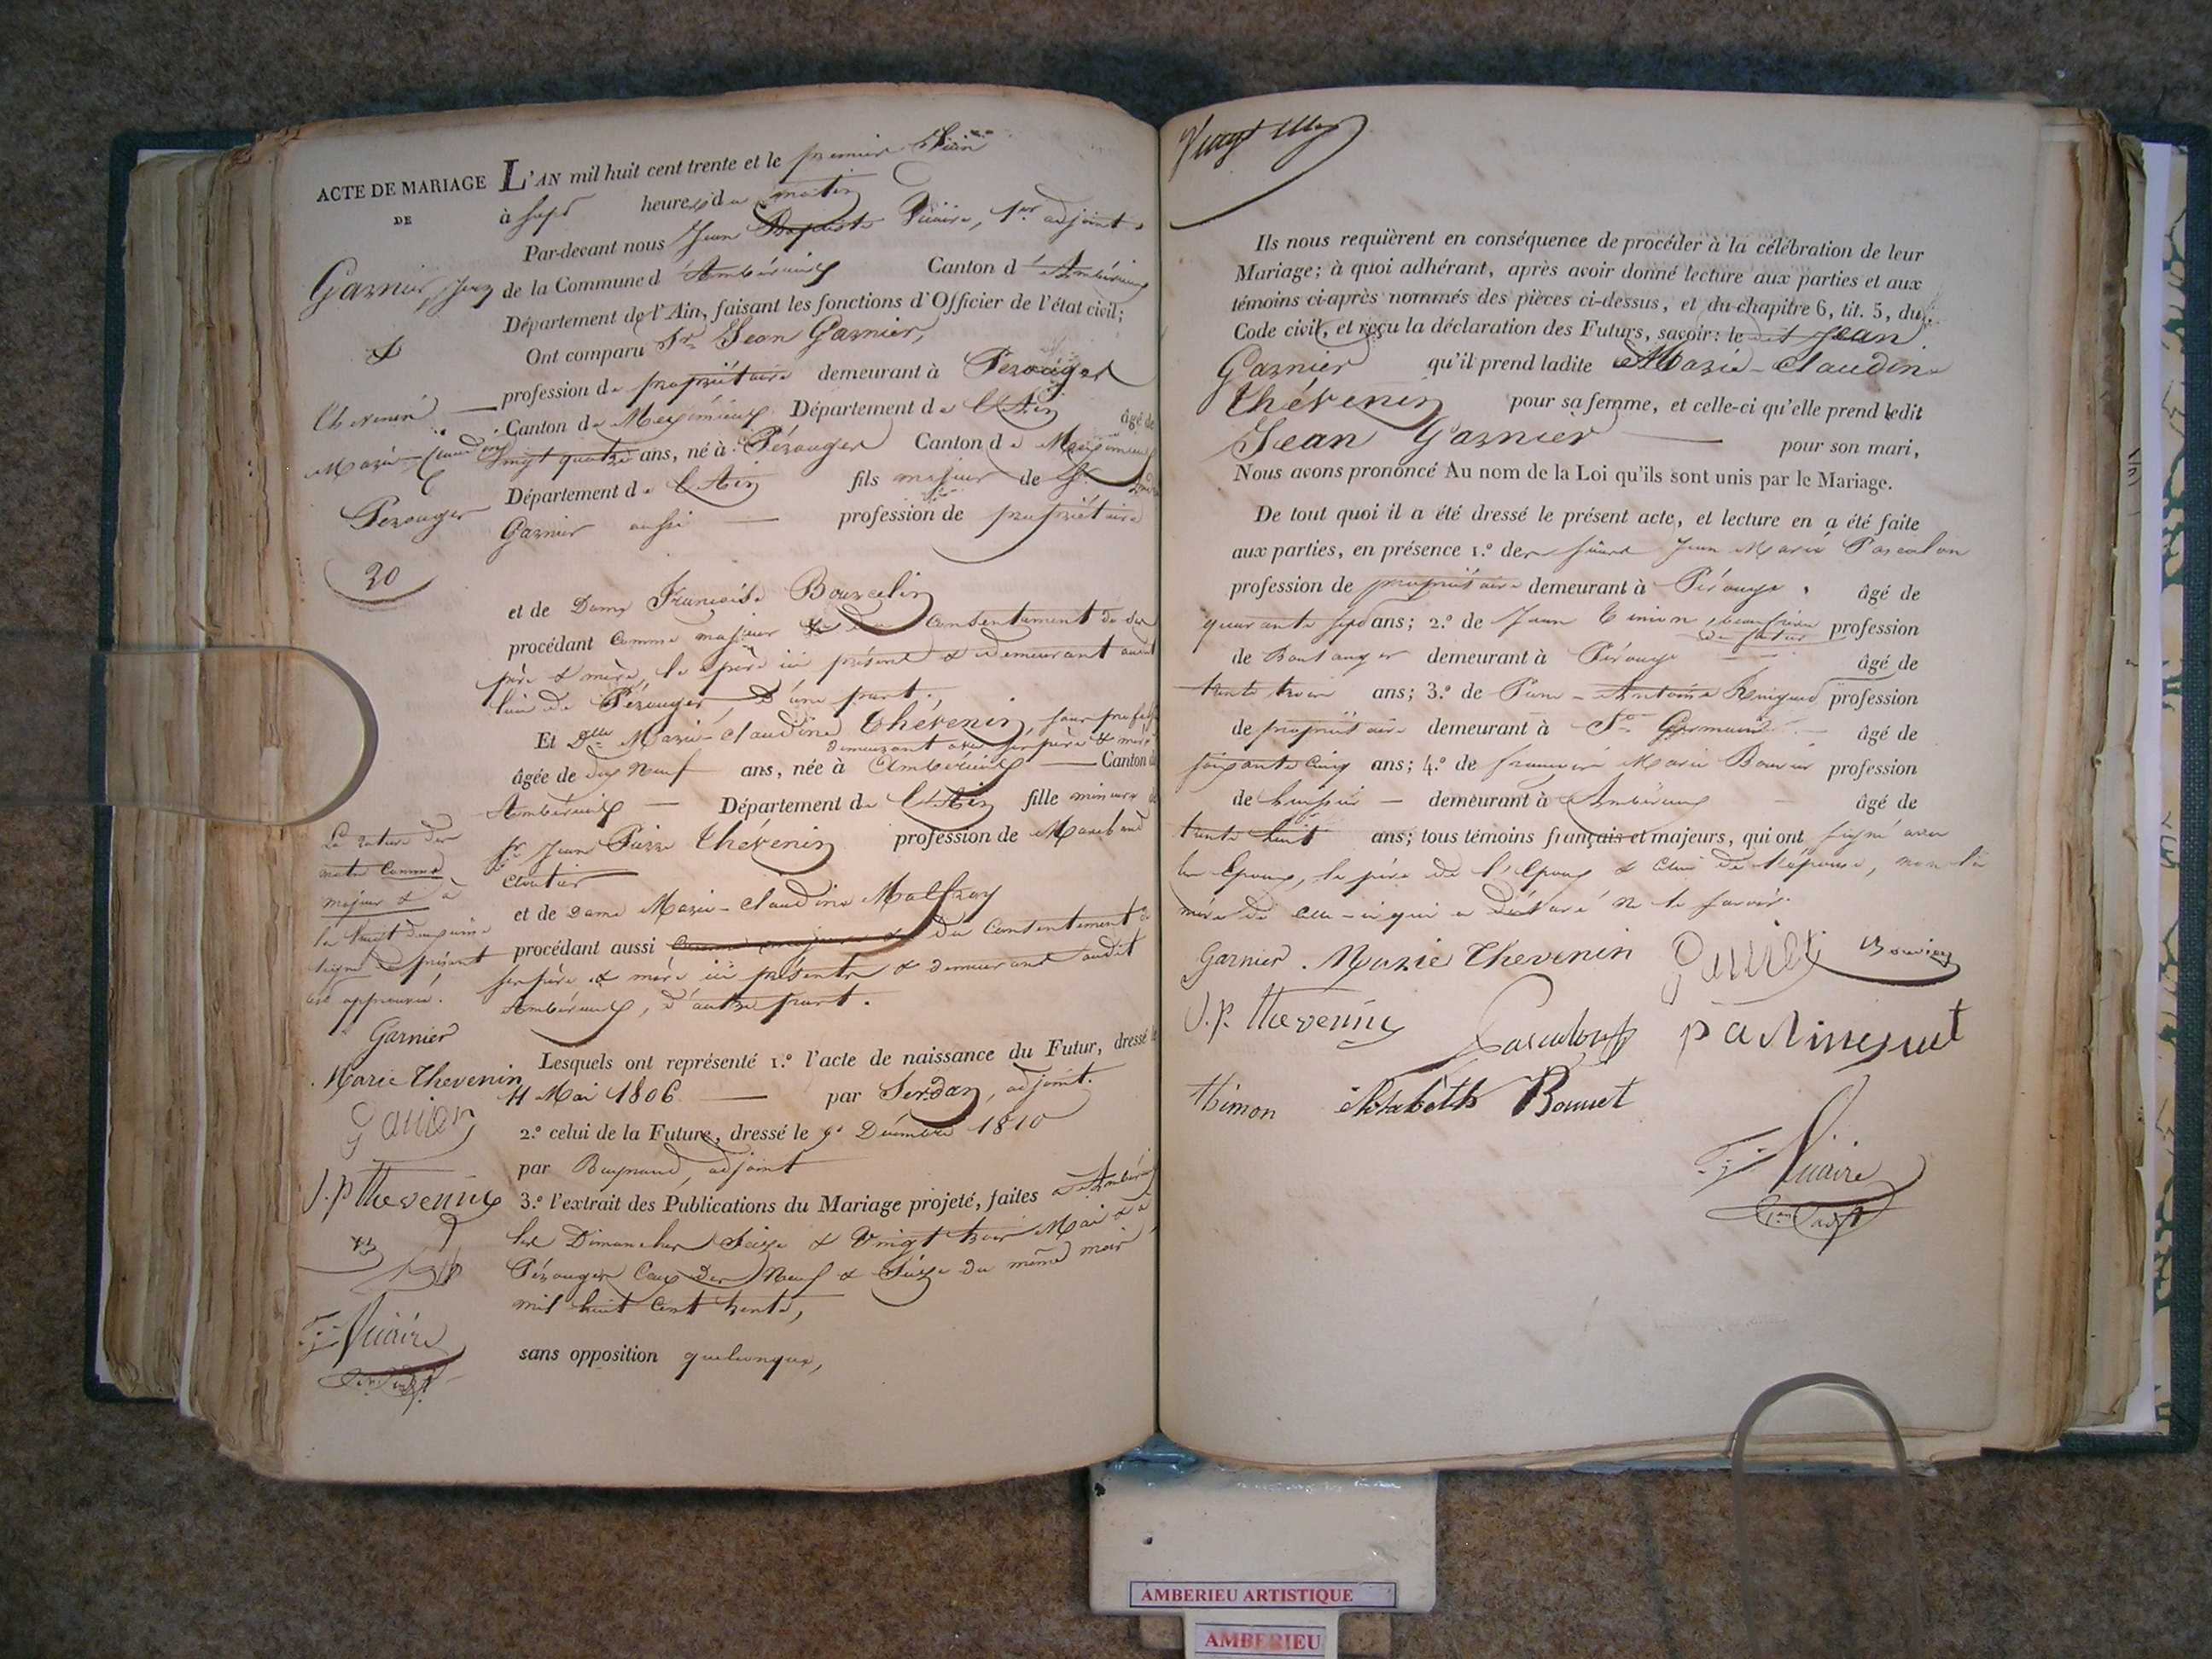 ACTE DE MARIAGE
DE
Garnier, Jean
&
Thevenin
Marie-Claudine
Perouges
20
L'AN mil huit cent trente et le premier Juin
à sept heures du matin
Par-devant nous Jean Baptiste Vicaire, 1er adjoint
de la Commune d'Ambérieux Canton d'Ambérieux
Département de l'Ain, faisant les fonctions d'Officier de l'état civil;
Ont comparu Sr Jean Garnier,
profession de propriétaire demeurant à Perouges
Canton de Meximieux Département de l'Ain âgé de
vingt quatre ans, né à Pérouges Canton de Meximieux
Département de l'Ain fils majeur de Sr
Garnier aussi profession de propriétaire
et de Dame Françoise Bourcelin
procédant comme majeur & du consentement de ses
père & mère, le père ici présent & demeurant audit
lieu de Pérouges, d'une part;
Et Dlle Marie-Claudine Thévenin, sans profess
demeurant avec ses père & mère
âgée de dix neuf ans, née à Ambérieux Canton d
Ambérieux Département de l'Ain fille mineure de
Sr Jean Pierre Thévenin profession de Marchand
Cloutier
et de Dame Marie-Claudine Malfray
procédant aussi comme majeure & du consentement de
ses père & mère ici présents & demeurant audit
Ambérieux, d'autre part.
Lesquels ont représenté 1.º l'acte de naissance du Futur, dressé le
11 Mai 1806 par Serdan, adjoint.
2.º celui de la Future, dressé le 9 Décembre 1810
par Raynaud, adjoint
3.º l'extrait des Publications du Mariage projeté, faites à Ambérieux
les Dimanches Seize & Vingt trois Mai & à
Pérouges ceux des Neuf & Seize du même mois
mil huit cent trente,
sans opposition quelconque,
La rature des
mots comme
majeur & à
la vingt deuxième
ligne du présent
est approuvée.
Garnier
Marie Thevenin
J. P. Thevenin
Vicaire
Ils nous requièrent en conséquence de procéder à la célébration de leur
Mariage; à quoi adhérant, après avoir donné lecture aux parties et aux
témoins ci-après nommés des pièces ci-dessus, et du chapitre 6, tit. 5, du
Code civil, et reçu la déclaration des Futurs, savoir: le dit Jean
Garnier qu'il prend ladite Marie-Claudine
Thévenin pour sa femme, et celle-ci qu'elle prend ledit
Jean Garnier pour son mari,
Nous avons prononcé Au nom de la Loi qu'ils sont unis par le Mariage.
De tout quoi il a été dressé le présent acte, et lecture en a été faite
aux parties, en présence 1.º de sieur Jean Marie Pascalon
profession de propriétaire demeurant à Pérouges âgé de
quarante sept ans; 2.º de Jean Timion, beau frère
du futur profession
de Boulanger demeurant à Pérouges âgé de
trente trois ans; 3.º de Pierre-Antoine profession
de propriétaire demeurant à St Germain âgé de
soixante cinq ans; 4.º de François Marie Bouvier profession
de huissier demeurant à Ambérieux âgé de
trente huit ans; tous témoins français et majeurs, qui ont signé avec
les Epoux, le père de l'Epoux & celui de l'épouse, non la
mère de celle-ci qui a déclaré ne le savoir.
Garnier Marie Thevenin Bouvier
J. P. Thevenin Pascalon
thimon Elisabeth Bonnet
Vicaire
AMBERIEU ARTISTIQUE
AMBERIEU